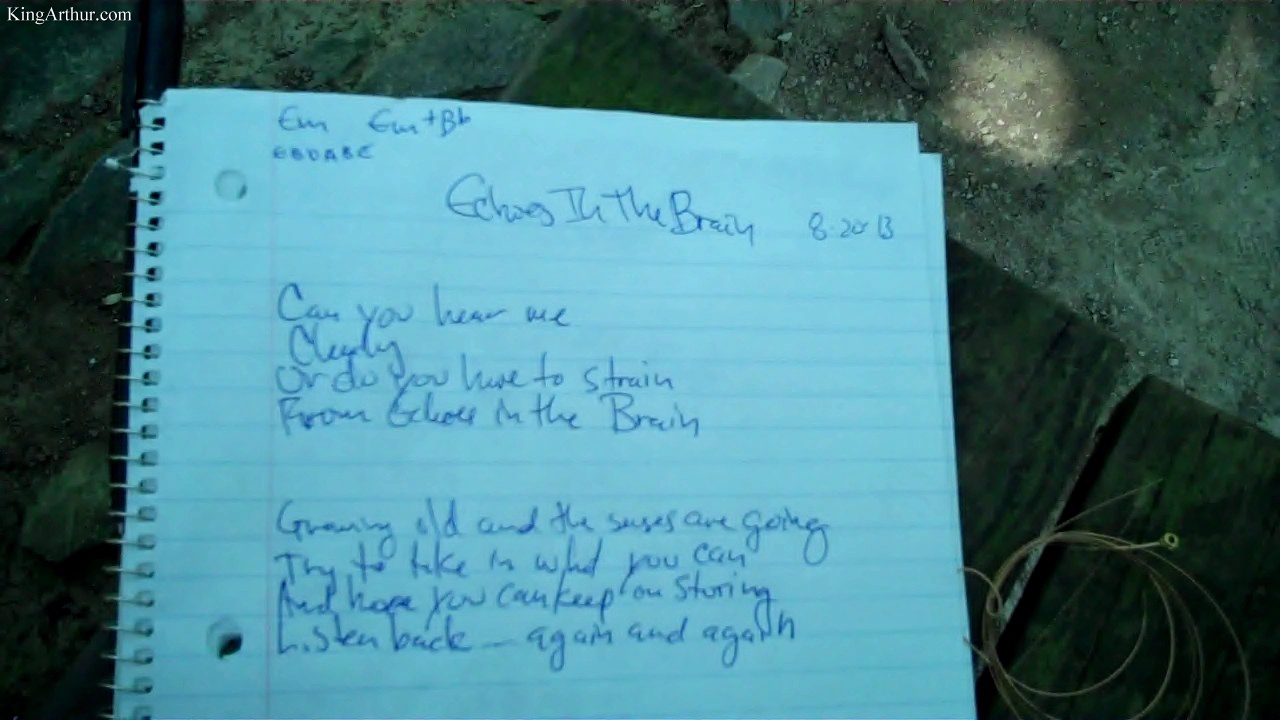 KingArthur.com
Em Em+Bb
EBDABE
Echoes In The Brain 8-20-13
Can you hear me
Clearly
Or do you have to strain
From Echoes in the Brain
Growing old and the senses are going
Try to take in what you can
And hope you can keep on storing
Listen back - again and again